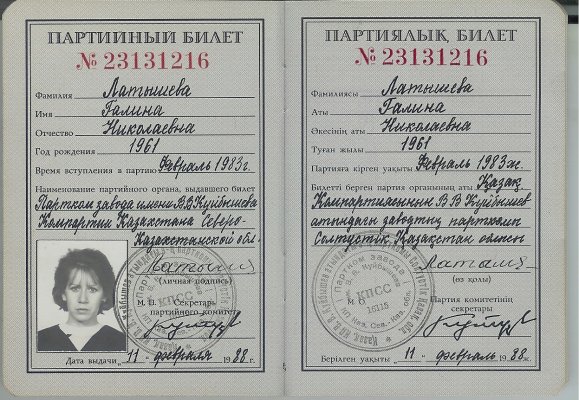 ПАРТИЙНЫЙ БИЛЕТ
№ 23131216
Фамилия Латышева
Имя Галина
Отчество Николаевна
Год рождения 1961
Время вступления в партию Февраль 1983г.
Наименование партийного органа, выдавшего билет
Партком завода имени В.В.Куйбышева
Компартии Казахстана Северо-
Казахстанской обл.
(личная подпись)
М. П. Секретарь
партийного комитета
КПСС
Дата выдачи „11 „ февраля 1988 г.
ПАРТИЯЛЫҚ БИЛЕТ
№ 23131216
Фамилиясы Латышева
Аты Галина
Әкесінің аты Николаевна
Туған жылы 1961
Партияға кірген уақыты Февраль 1983ж.
Билетті берген партия органының аты Қазақ
Компартиясының В.В Куйбышев
атындағы заводтің парткомы
Солтүстік Қазақстан облысы
(өз қолы)
М О
Партия комитетінің
секретары
Партком завода
В. В. Куйбышева
КПСС
15115
Берілген уақыты „ 11 „ февраль 1988 ж.